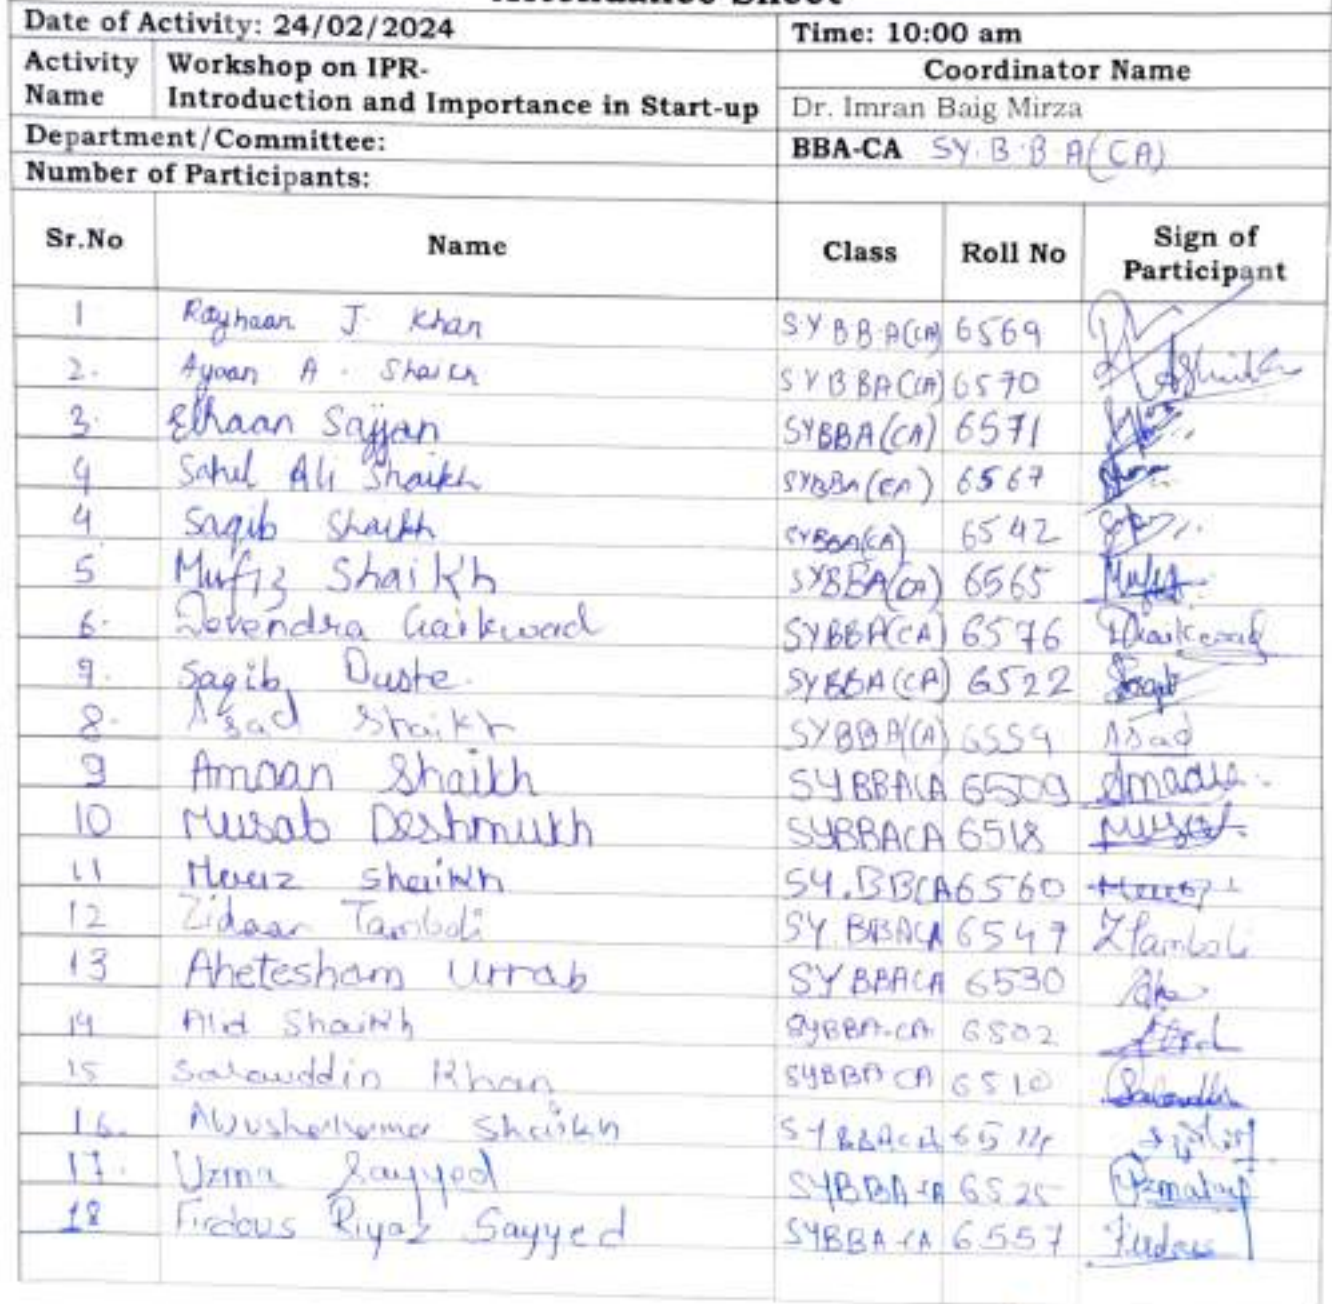 Attendance Sheet
Date of Activity: 24/02/2024 Time: 10:00 am
Activity Name Workshop on IPR- Coordinator Name
Introduction and Importance in Start-up Dr. Imran Baig Mirza
Department/Committee: BBA-CA SY.B.B.A(CA)
Number of Participants:
Sr.No Name Class Roll No Sign of Participant
1 Rayhaan J. Khan S.Y B B A(CA) 6569
2. Ayaan A. Shaikh S Y B BA(CA) 6570 AShaikh
3. Elhaan Sajjan SYBBA(CA) 6571
4 Sahil Ali Shaikh SYBBA(CA) 6567
4 Saqib Shaikh SYBBA(CA) 6542
5 Mufiz Shaikh SYBBA(CA) 6565 Mufiz
6. Devendra Gaikwad SYBBA(CA) 6576 DGaikwad
7. Saqib Duste. SYBBA(CA) 6522
8. Asad Shaikh SYBBA(CA) 6559 Asad
9 Amaan Shaikh SYBBACA 6509
10 Musab Deshmukh SYBBACA 6518 Musab
11 Shaikh SY.BBCA 6560
12 Zidaan Tamboli SY.BBACA 6547 ZTamboli
13 Ahetesham Urrab SYBBACA 6530
14 Shaikh SYBBA-CA 6502
15 Khan SYBBA CA 6510
16. Shaikh SYBBACA
17. Uzma Sayyed SYBBA-CA 6525
18 Firdous Riyaz Sayyed SYBBA-CA 6557 Firdous